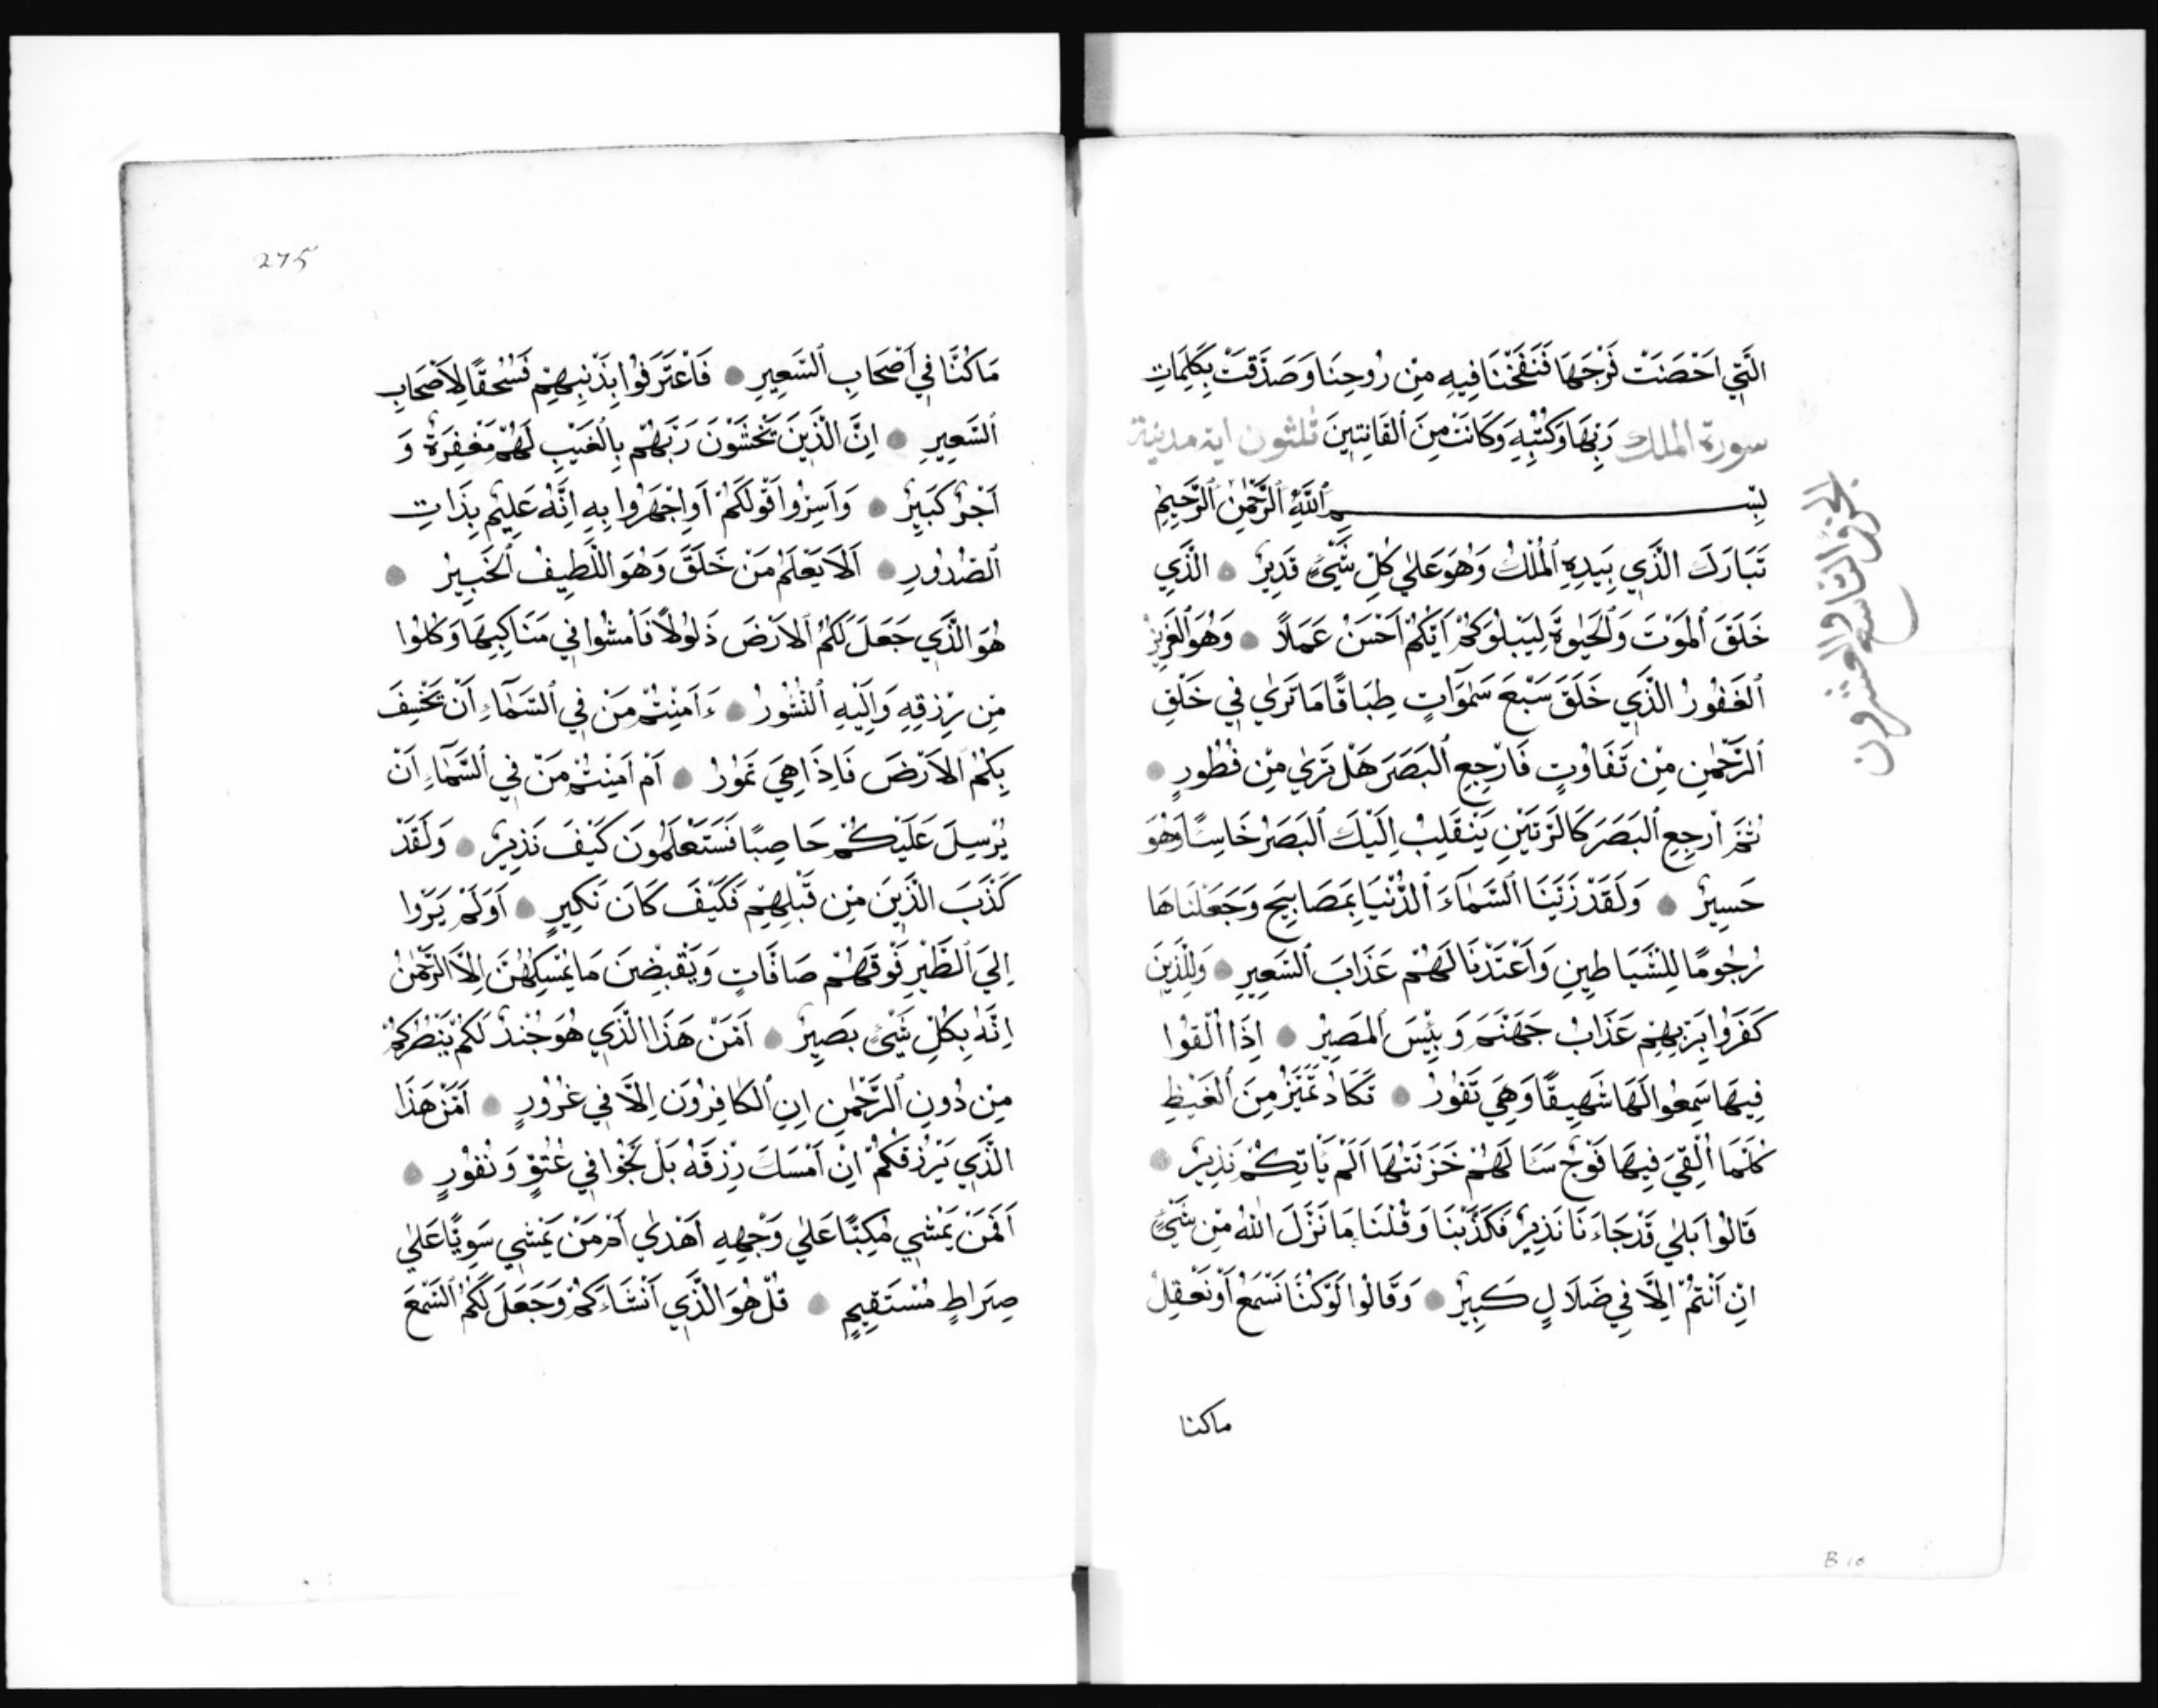 الَّتِي اَحْصَنَتْ فَرْجَهَا فَنَفَخْنَا فِيهِ مِنْ رُوحِنَا وَصَدَّقَتْ بِكَلِمَاتِ
سورة الملك رَبِّهَا وَكُتُبِهِ وَكَانَتْ مِنَ ٱلقَانِتِينَ ثلثون اية مدنية
بِسْمِ ٱللَّهِ ٱلرَّحْمٰنِ ٱلرَّحِيمِ
تَبَارَكَ الَّذِي بِيَدِهِ ٱلمُلْكُ وَهُوَ عَلٰي كُلِّ شَيْءٍ قَدِيرٌ ● الَّذِي
خَلَقَ ٱلمَوْتَ وَٱلحَيٰوةَ لِيَبْلُوَكُمْ اَيُّكُمْ اَحْسَنُ عَمَلًا ● وَهُوَ ٱلعَزِيزُ
ٱلغَفُورُ الَّذِي خَلَقَ سَبْعَ سَمٰوَاتٍ طِبَاقًا مَا تَرٰي فِي خَلْقِ
ٱلرَّحْمٰنِ مِنْ تَفَاوُتٍ فَارْجِعِ ٱلبَصَرَ هَلْ تَرٰي مِنْ فُطُورٍ ●
ثُمَّ ارْجِعِ ٱلبَصَرَ كَالرَّتَيْنِ يَنْقَلِبْ اِلَيْكَ ٱلبَصَرُ خَاسِئًا وَهُوَ
حَسِيرٌ ● وَلَقَدْ زَيَّنَا ٱلسَّمَآءَ ٱلدُّنْيَا بِمَصَابِيحَ وَجَعَلْنَاهَا
رُجُومًا لِلشَّيَاطِينِ وَاَعْتَدْنَا لَهُمْ عَذَابَ ٱلسَّعِيرِ ● وَلِلَّذِينَ
كَفَرُوا بِرَبِّهِمْ عَذَابُ جَهَنَّمَ وَبِئْسَ ٱلمَصِيرُ ● اِذَا اُلْقُوا
فِيهَا سَمِعُوا لَهَا شَهِيقًا وَهِيَ تَفُورُ ● تَكَادُ تَمَيَّزُ مِنَ ٱلغَيْظِ
كُلَّمَا اُلْقِيَ فِيهَا فَوْجٌ سَاَلَهُمْ خَزَنَتُهَا اَلَمْ يَاْتِكُمْ نَذِيرٌ ●
قَالُوا بَلٰي قَدْ جَاءَنَا نَذِيرٌ فَكَذَّبْنَا وَقُلْنَا مَا نَزَّلَ اللّٰهُ مِنْ شَيْءٍ
اِنْ اَنْتُمْ اِلَّا فِي ضَلَالٍ كَبِيرٍ ● وَقَالُوا لَوْ كُنَّا نَسْمَعُ اَوْ نَعْقِلُ
ماكنا
الجزو التاسع والعشرون
B 10
275
مَا كُنَّا فِي اَصْحَابِ ٱلسَّعِيرِ ● فَاعْتَرَفُوا بِذَنْبِهِمْ فَسُحْقًا لِاَصْحَابِ
ٱلسَّعِيرِ ● اِنَّ الَّذِينَ يَخْشَوْنَ رَبَّهُمْ بِالْغَيْبِ لَهُمْ مَغْفِرَةٌ وَ
اَجْرٌ كَبِيرٌ ● وَاَسِرُّوا قَوْلَكُمْ اَوِاجْهَرُوا بِهِ اِنَّهُ عَلِيمٌ بِذَاتِ
ٱلصُّدُورِ ● اَلَا يَعْلَمُ مَنْ خَلَقَ وَهُوَ اللَّطِيفُ ٱلخَبِيرُ ●
هُوَ الَّذِي جَعَلَ لَكُمُ ٱلاَرْضَ ذَلُولًا فَامْشُوا فِي مَنَاكِبِهَا وَكُلُوا
مِنْ رِزْقِهِ وَاِلَيْهِ ٱلنُّشُورُ ● ءَاَمِنْتُمْ مَنْ فِي ٱلسَّمَآءِ اَنْ يَخْسِفَ
بِكُمُ ٱلاَرْضَ فَاِذَا هِيَ تَمُورُ ● اَمْ اَمِنْتُمْ مَنْ فِي ٱلسَّمَآءِ اَنْ
يُرْسِلَ عَلَيْكُمْ حَاصِبًا فَسَتَعْلَمُونَ كَيْفَ نَذِيرِ ● وَلَقَدْ
كَذَّبَ الَّذِينَ مِنْ قَبْلِهِمْ فَكَيْفَ كَانَ نَكِيرِ ● اَوَلَمْ يَرَوْا
اِلَيَ ٱلطَّيْرِ فَوْقَهُمْ صَافَّاتٍ وَيَقْبِضْنَ مَا يُمْسِكُهُنَّ اِلَّا الرَّحْمٰنُ
اِنَّهُ بِكُلِّ شَيْءٍ بَصِيرٌ ● اَمَّنْ هَذَا الَّذِي هُوَ جُنْدٌ لَكُمْ يَنْصُرُكُمْ
مِنْ دُونِ ٱلرَّحْمٰنِ اِنِ ٱلكَافِرُونَ اِلَّا فِي غُرُورٍ ● اَمَّنْ هَذَا
الَّذِي يَرْزُقُكُمْ اِنْ اَمْسَكَ رِزْقَهُ بَلْ لَجُّوا فِي عُتُوٍّ وَنُفُورٍ ●
اَفَمَنْ يَمْشِي مُكِبًّا عَلٰي وَجْهِهِ اَهْدٰي اَمْ مَنْ يَمْشِي سَوِيًّا عَلٰي
صِرَاطٍ مُسْتَقِيمٍ ● قُلْ هُوَ الَّذِي اَنْشَاَكُمْ وَجَعَلَ لَكُمُ ٱلسَّمْعَ